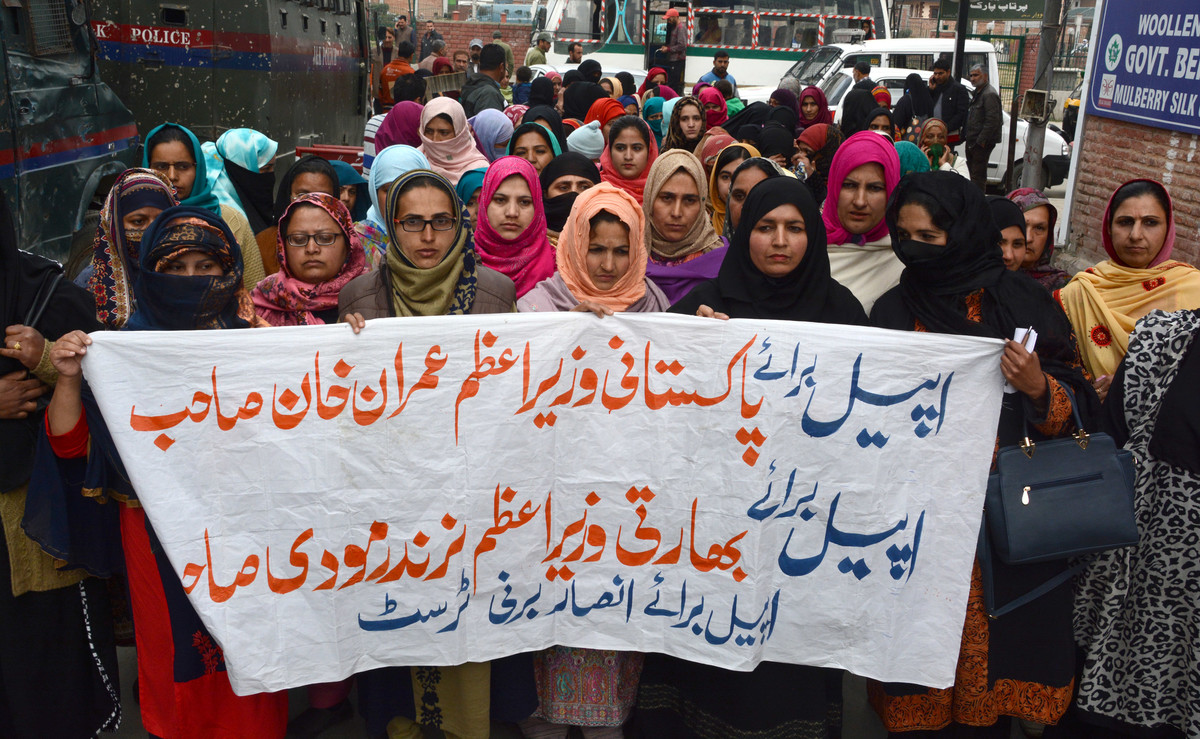 K POLICE
پرتاپ پارک
WOOLLEN
GOVT. BE
MULBERRY SILK
اپیل برائے پاکستانی وزیراعظم عمران خان صاحب
اپیل برائے بھارتی وزیراعظم نرندر مودی صاح
اپیل برائے انصار برنی ٹرسٹ